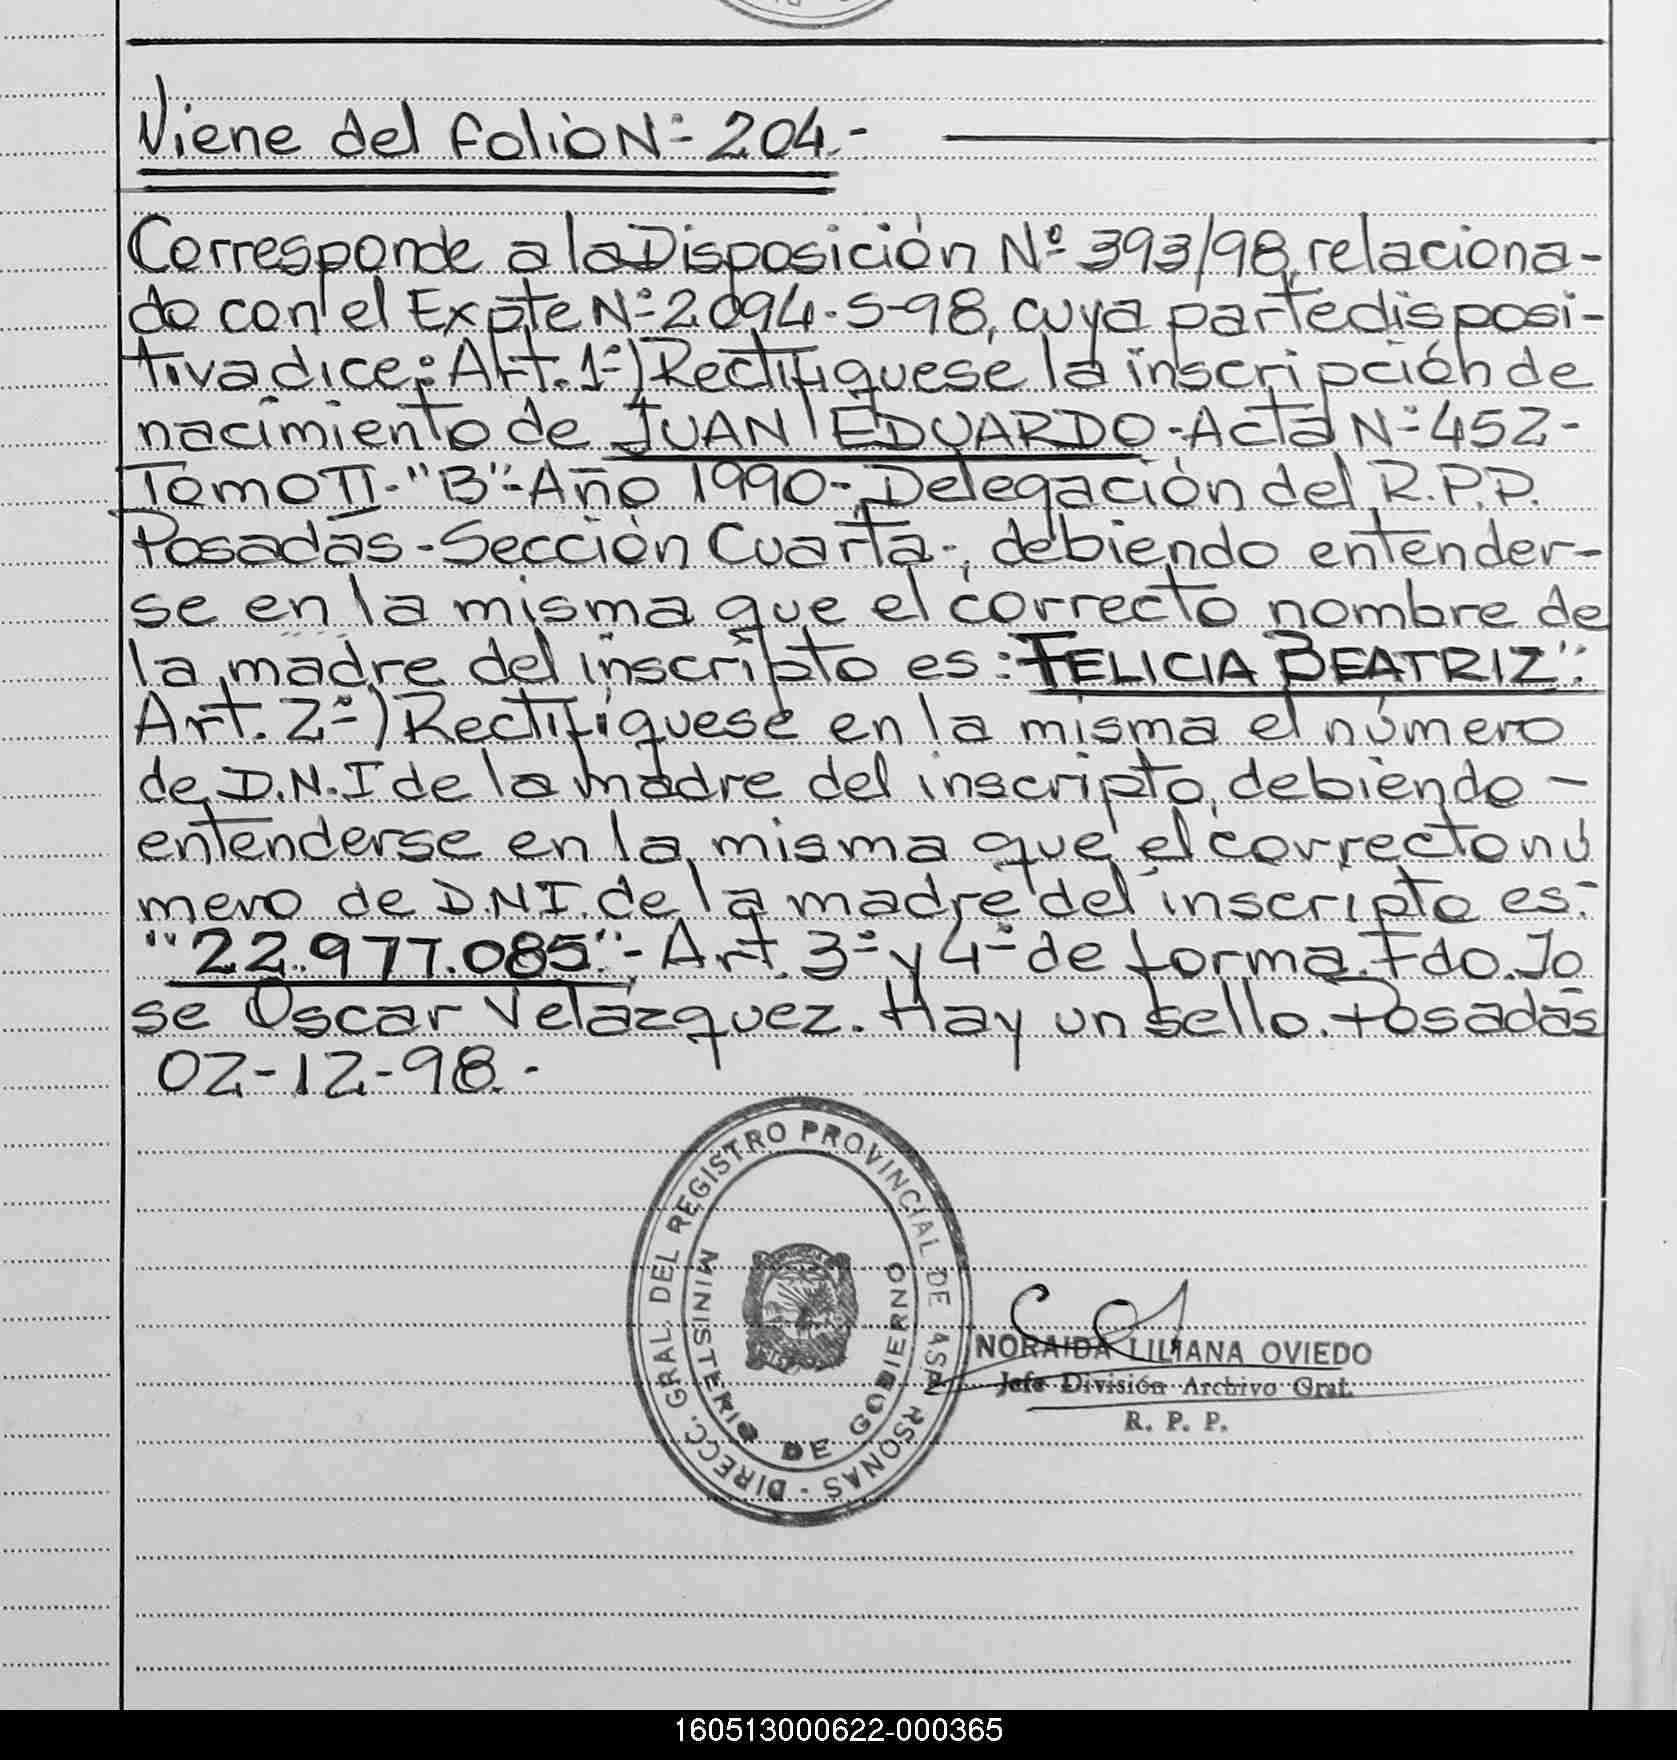 Viene del folio Nº 204.-
Corresponde a la Disposición Nº 393/98, relaciona-
do con el Expte Nº 2094-S-98, cuya parte disposi-
tiva dice: Art. 1º) Rectifíquese la inscripción de
nacimiento de JUAN EDUARDO - Acta Nº 452-
Tomo II - "B" - Año 1990 - Delegación del R.P.P.
Posadas - Sección Cuarta -, debiendo entender-
se en la misma que el correcto nombre de
la madre del inscripto es: "FELICIA BEATRIZ".
Art. 2º) Rectifíquese en la misma el número
de D.N.I de la madre del inscripto, debiendo -
entenderse en la misma que el correcto nú
mero de D.N.I. de la madre del inscripto es:
"22.977.085" - Art. 3º y 4º de forma. Fdo. Jo
se Oscar Velázquez. Hay un sello. Posadas
02-12-98.-
DIRECC. GRAL. DEL REGISTRO PROVINCIAL DE
PERSONAS
MINISTERIO DE GOBIERNO
NORAIDA LILIANA OVIEDO
Jefe División Archivo Gral.
R. P. P.
160513000622-000365